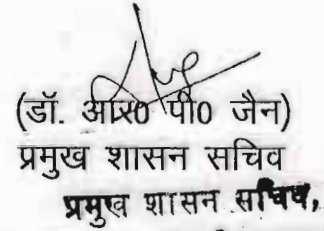 (डॉ. आर0 पी0 जैन)
प्रमुख शासन सचिव
प्रमुख शासन सचिव,